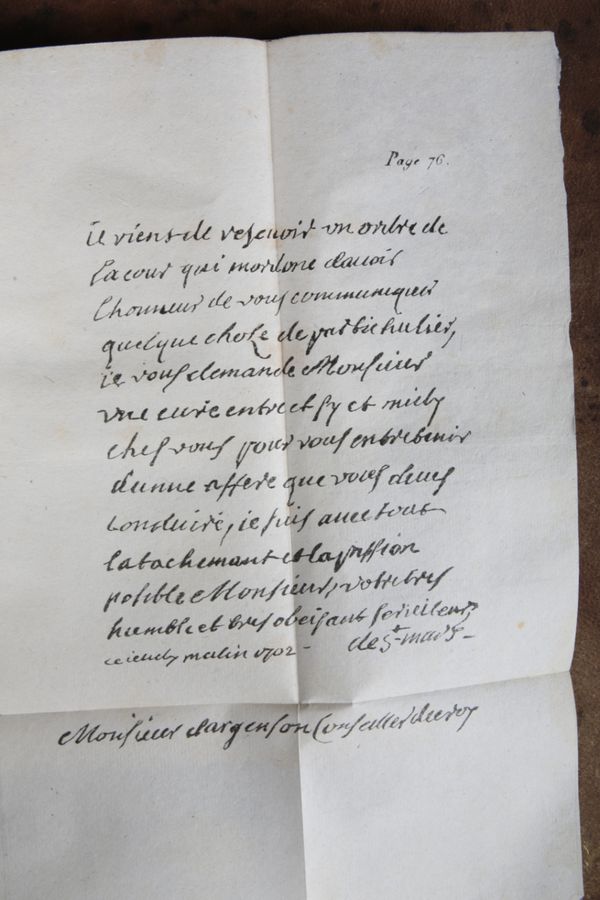 Page 76.
ie viens de resevoir un ordre de
la cour qui mordone davoir
lhonneur de vous communiquer
quelque choze de partichulier,
ie vous demande Monsieur
une eure entre et sy et midy
ches vous pour vous entretenir
dunne affere que vous deves
conduire, ie suis avec tout
latachemant et la passion
posible Monsieur, votre tres
humble et tres obeisant serviteur,
ce ieudy matin 1702 - de St mars -
Monsieur dargenson Conseller du roy